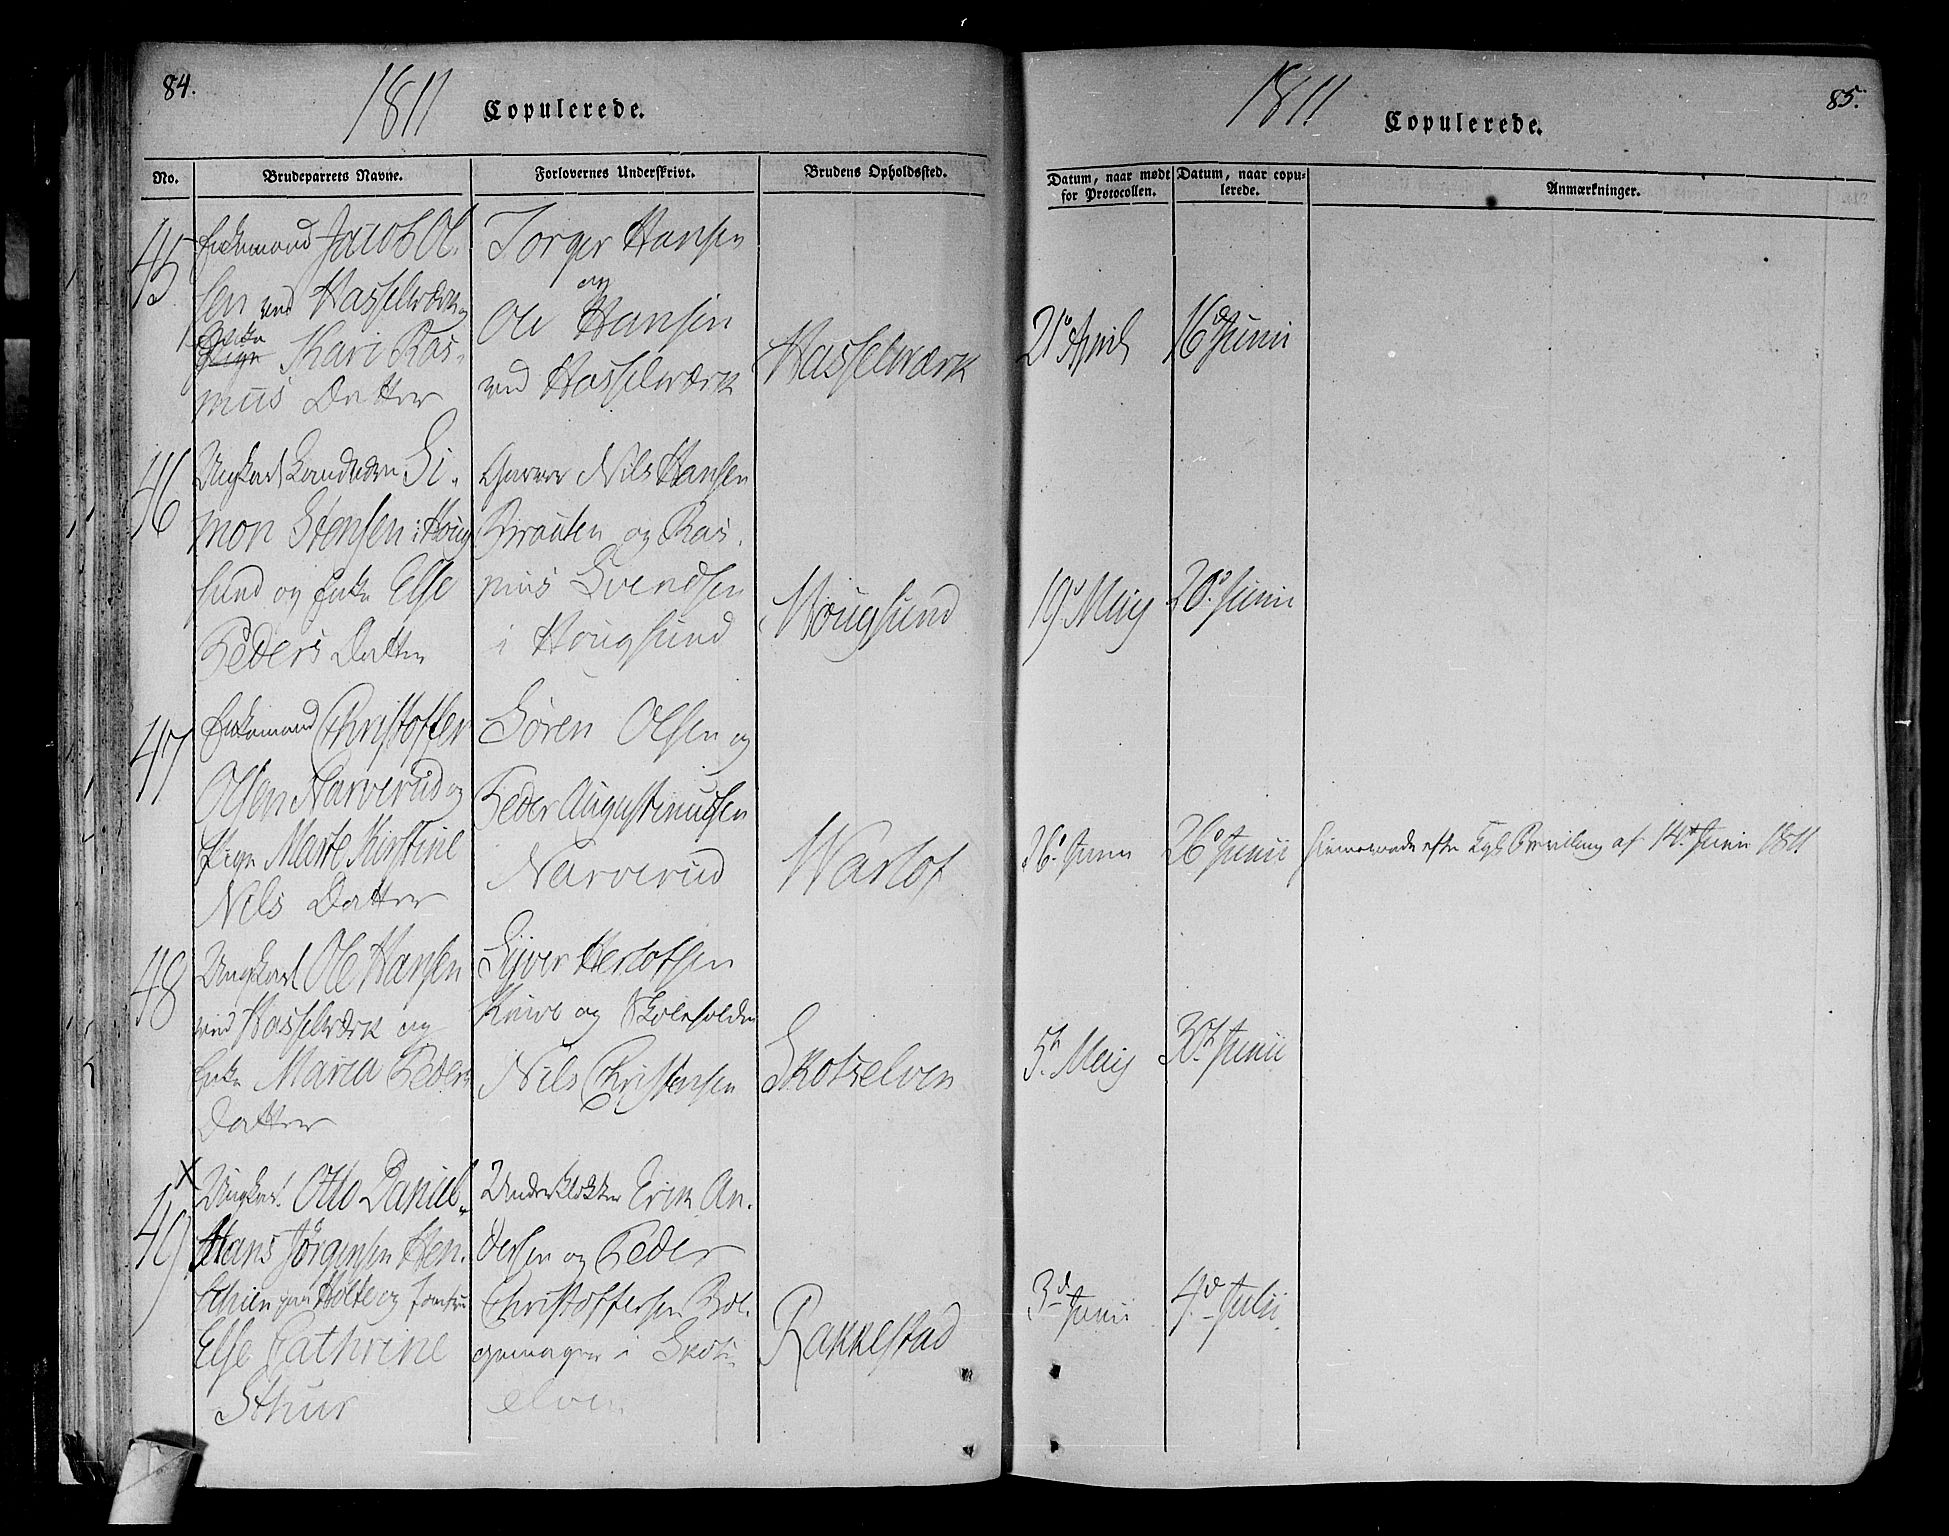 84.
1811
Copulerede.
No.
Brudeparrets Navne.
Forlovernes Underskrivt.
Brudens Opholdssted.
45
Enkemand Jacob Ol-
sen ved Hasselværk og
Enke
Pige Kari Ras-
mus Datter
Torger Hansen
og
Ole Hansen
ved Hasselværk
Hasselværk
46
Ungkarl Si-
mon Stensen i Houg
sund og Enke Else
Peders Datter
Nils Hansen
Braaten og Ras-
mus Svendsen
i Hougsund
Hougsund
47
Enkemand Christoffer
Olsen Narverud og
Pige Marte Kirstine
Nils Datter
Sören Olsen og
Peder Augustinussen
Narverud
Warlof
48
Ungkarl Ole Hansen
ved Hasselværk og
Enke Maria Peders
Datter
Syver Herlofsen
Knive og Skoleholder
Nils Christensen
Skotselven
49
Ungkarl Otto Daniel
Hans Jörgensen Hen-
paa Holte og Jomfru
Else Cathrine
Sthur
Underklokker Erik An-
dersen og Peder
Christoffersen Bol-
gemager i Skots-
elven
Rakkestad
1811
Copulerede.
85.
Datum, naar mødt
for Protocollen.
Datum, naar copu-
lerede.
Anmærkninger.
21 April
16 Junii
19 Maij
20 Junii
26 Junii
26 Junii
Hiemeviede efter Kgl. Bevilling af 14 Junii 1811
5 Maij
30 Junii
3d Junii
4d Julii